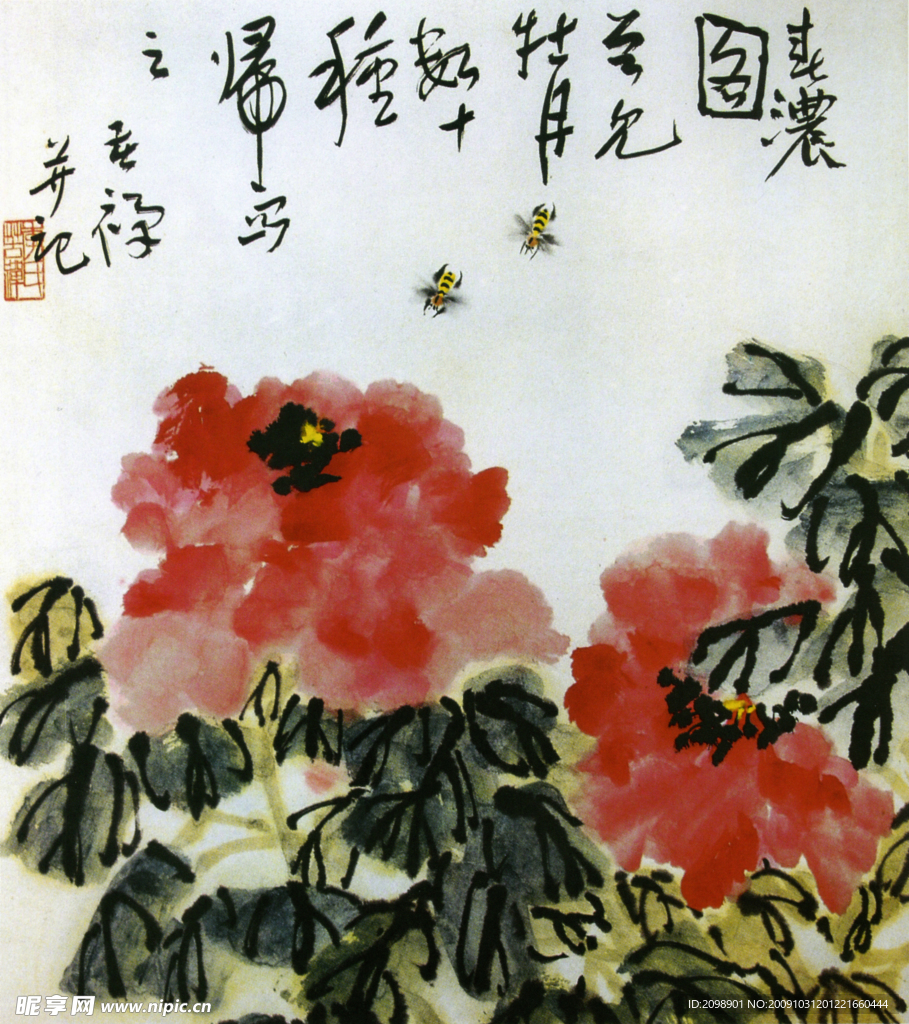 春濃
图
曾见
牡丹
数十
種
帰写
之
春禄
并记
昵享网 www.nipic.cn
ID:2098901 NO:20091031201221660444